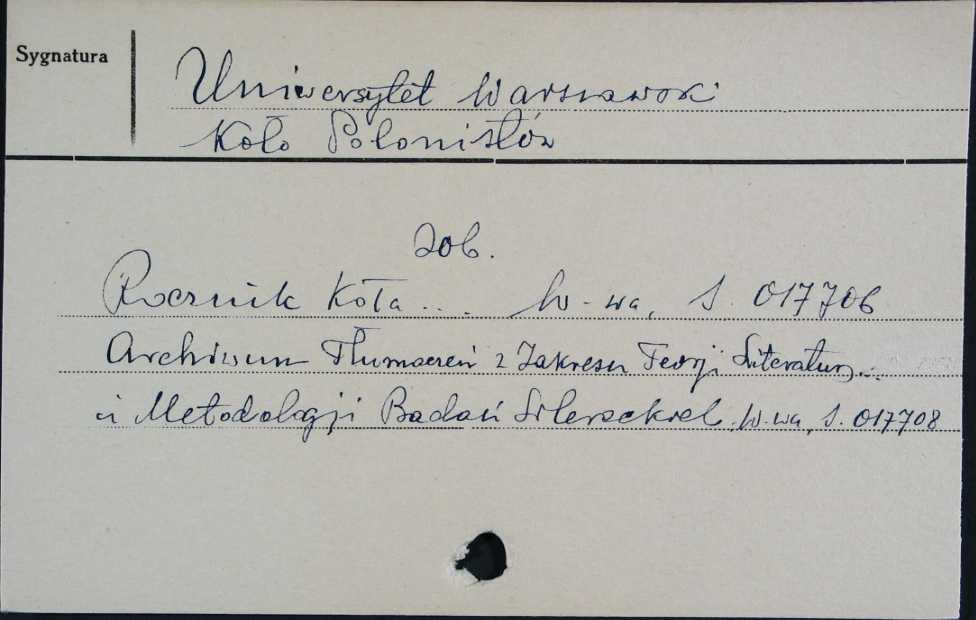 Sygnatura
Uniwersytet Warszawski
Koło Polonistów
zob.
Rocznik Koła ... W-wa, S. 017706
Archiwum Tłumaczeń z Zakresu Teorji Literatury...
i Metodologji Badań Literackich. W-wa, S. 017708